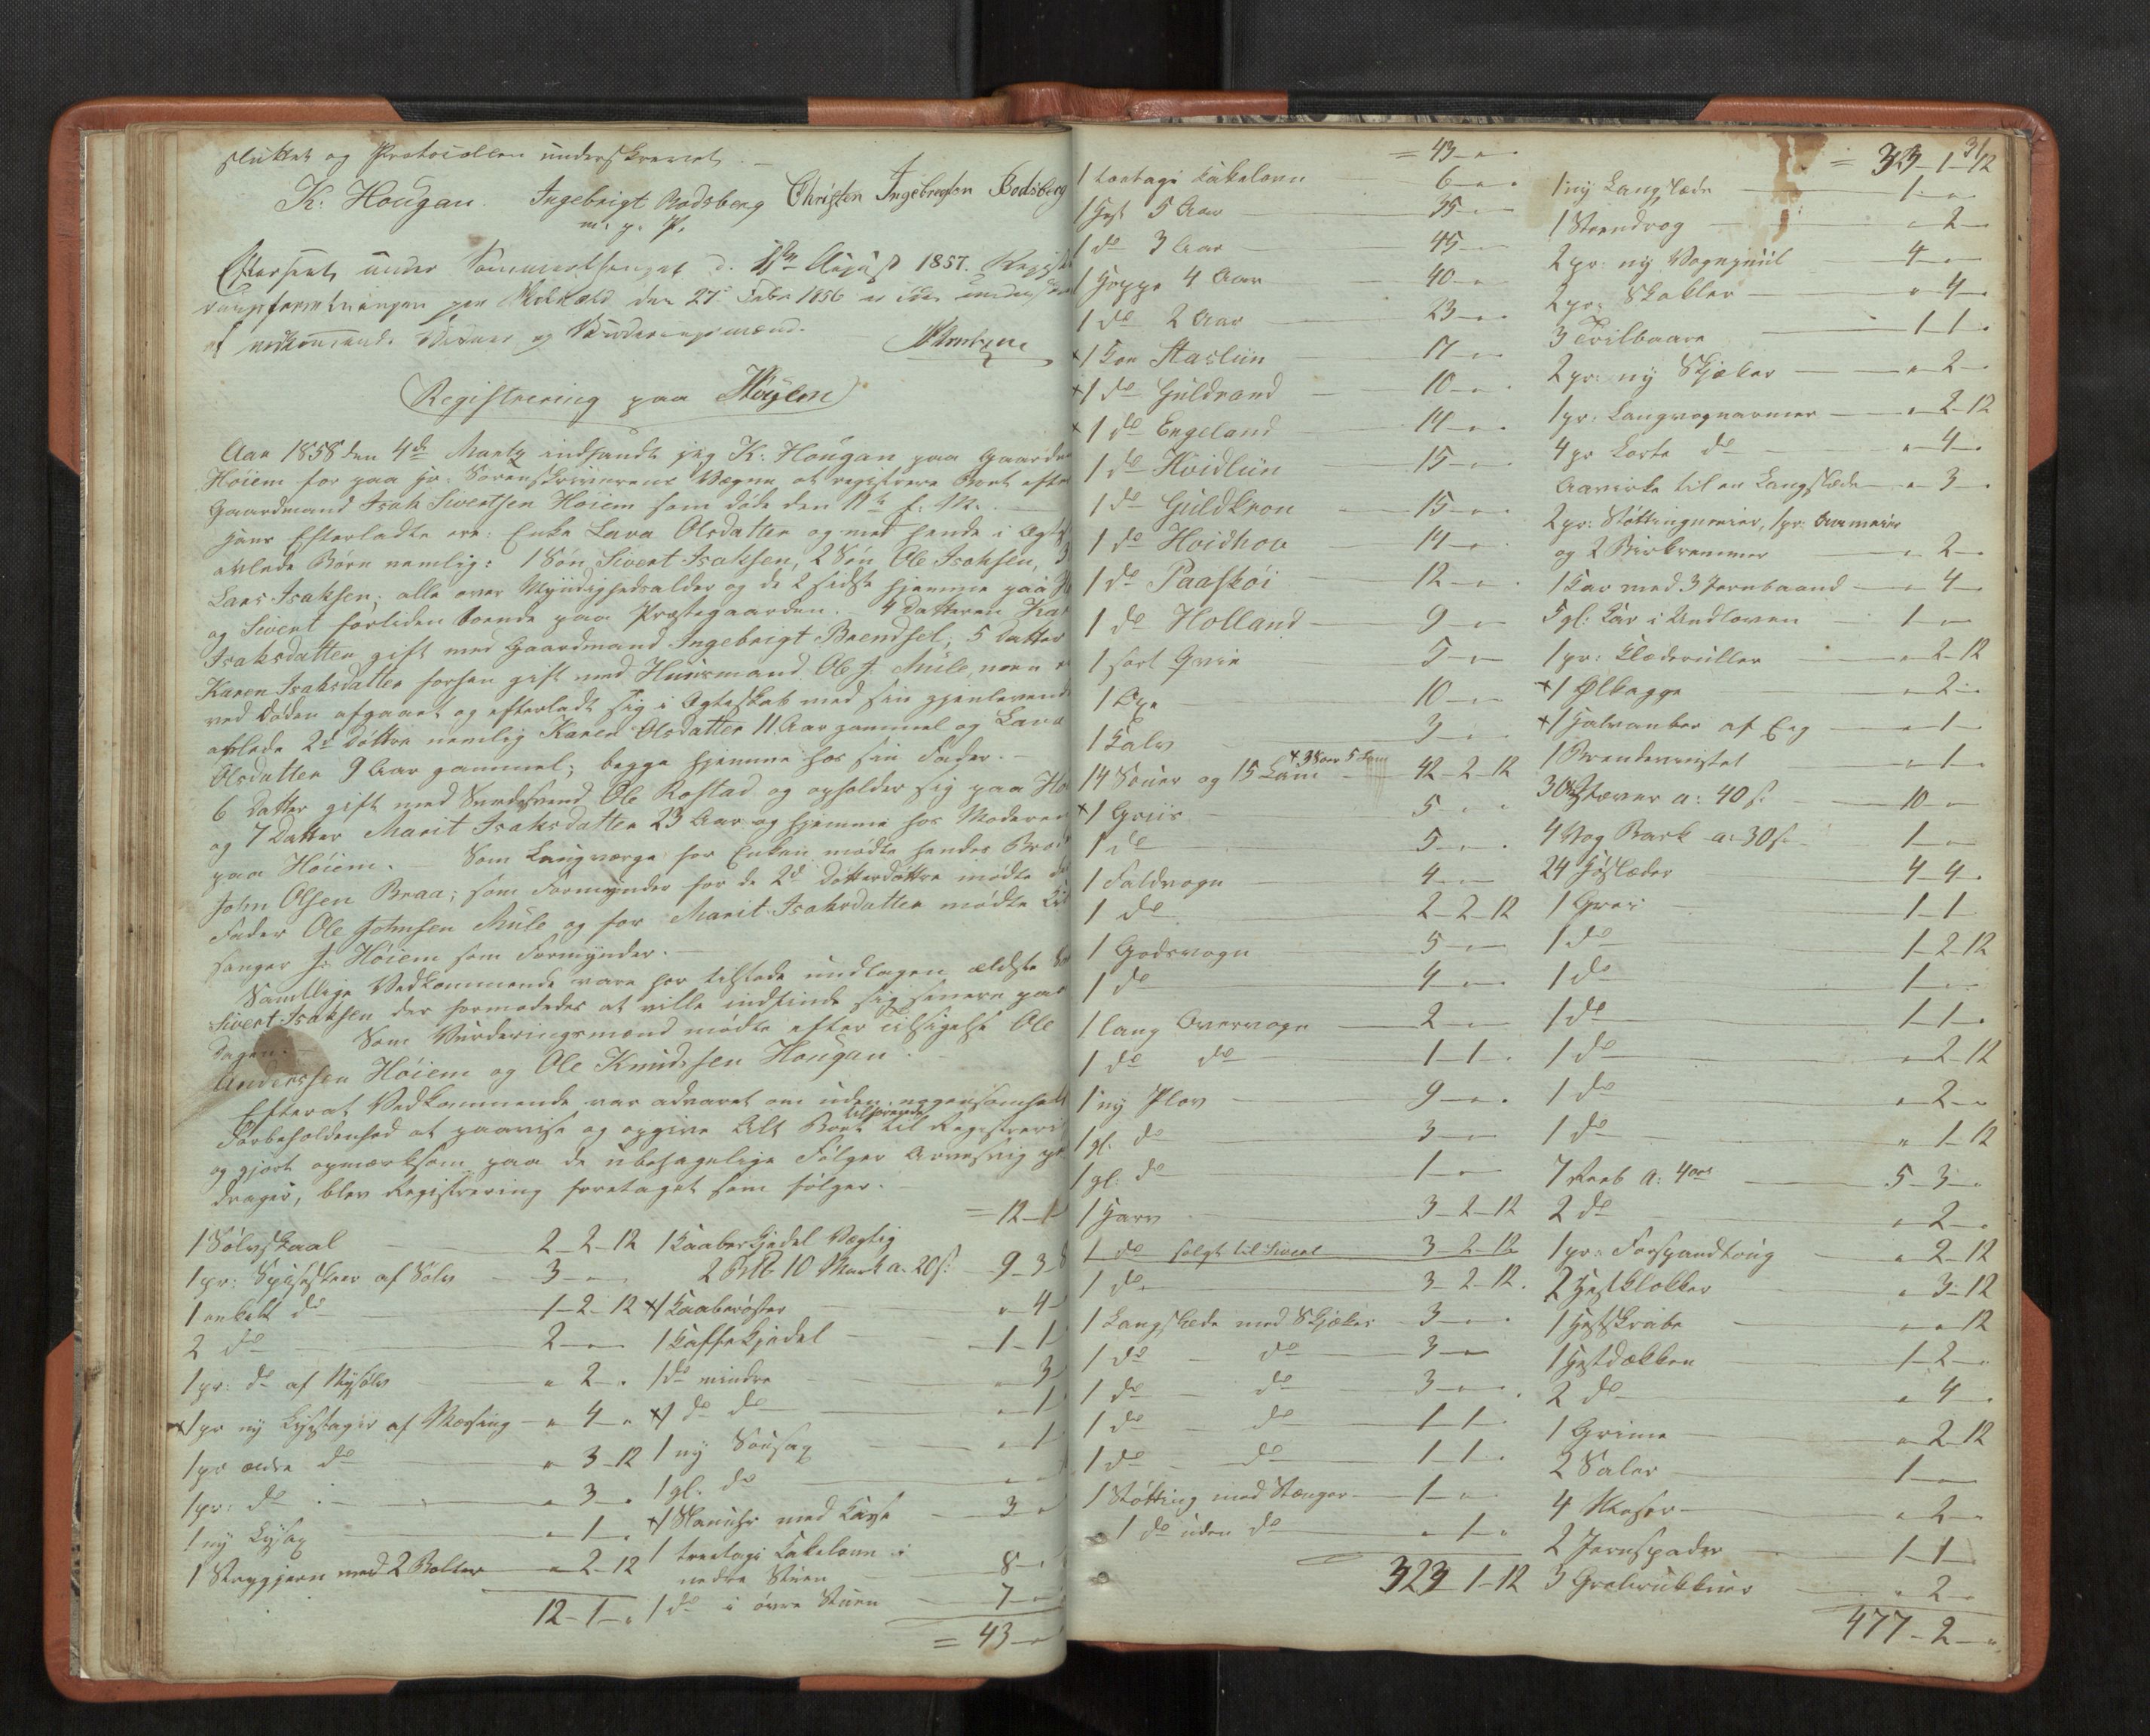 sluttet og Protocollen underskrevet. –
K. Hougan. Ingebrigt Rodsberg Christen Ingebrigtsen Rodsberg
m. p. P.
Efterseet under Sommerthinget d. August 1857.
den 27 Febr 1856 er ikke
af vedkommende Vidner og Vurderingsmænd.
Registrering paa Høylem
Aar 1858 den 4de Martz indfandt jeg K. Hougan paa Gaarden
Høiem for paa Hr. Sorenskriverens Vegne at registrere Boet efter
Gaardmand Isak Sivertsen Høiem som døde den f. M. –
Hans Efterladte ere: Enke Lava Olsdatter og med hende i Egtesk
avlede Børn nemlig: 1 Søn Sivert Isaksen, 2 Søn Ole Isaksen, 3
Lars Isaksen; alle over Myndighedsalder og de 2 sidste hjemme paa
og Sivert forliden boende paa Præstegaarden. – 4 Datteren
Isaksdatter gift med Gaardmand Ingebrigt Brendsel, 5 Datter
Karen Isaksdatter forhen gift med Huusmand Ole J. Mule, men er
ved Døden afgaaet og efterladt sig i Egteskab med sin gjenlevende
avlede 2de Døttre nemlig Karen Olsdatter 11 Aar gammel og Lava
Olsdatter 9 Aar gammel; begge hjemme hos sin Fader. –
6 Datter gift med Ole Rostad og opholder sig paa
og 7 Datter Marit Isaksdatter 23 Aar og hjemme hos Moderen
paa Høiem. – Som Laugværge for Enken mødte hendes
John Olsen Braa; som Formynder for de 2de Datterdøttre mødte
Fader Ole Johnsen Mule og for Marit Isaksdatter mødte
sanger J. Høiem som Formynder. –
Samtlige Vedkommende vare her tilstede undtagen ældste
Sivert Isaksen der formodedes at ville indfinde sig senere paa
Dagen. – Som Vurderingsmænd mødte efter Tilsigelse Ole
Anderssen Høiem og Ole Knudssen Hougan. –
Efterat Vedkommende var advaret om uden
Forbeholdenhed at paavise og opgive Alt Boet tilhørende til Registrering
og gjort opmærksom paa de ubehagelige Følger
drager, blev Registrering foretaget som følger. –
= 12-1
1 Sølvskaal – 2-2-12
1 pr: Spiseskeer af Sølv – 3 - "
1 enkelt do – 1-2-12
2 do – 2 - "
1 pr: do af Nysølv – " 2 - "
x 1 pr ny Lysestager af Messing – " 4 - "
1 pr ældre do – " 3-12
1 pr: do – " 3 - "
1 ny Lysax – " 1 - "
1 Strygjern med 2 Bolter – " 2-12
12-1 - "
1 Kaaberkjedel Vægtig
2 B℔ 10 Mark a. 20 s. – 9-3-8
x 1 Kaaberøster – " 4
1 Kaffekjedel – 1-1
1 do mindre – " 3
x 1 do do – " 1
1 ny Sousax – " 1
1 gl. do – "
x 1 Stauuhr med Kasse – 3 "
1 treetagi Kakelovn i
nedre Stuen – 8 -
1 do i øvre Stuen – 7 -
= 43 - "
= 43 - "
1 toetagi Kakelovn – 6 - "
1 Hest 5 Aar – 35 - "
1 do 3 Aar – 45 - "
1 Hoppe 4 Aar – 40 - "
1 do 2 Aar – 23 - "
x 1 Koe Staslin – 17 - "
x 1 do Guldrand – 10 - "
x 1 do Engeland – 14 - "
1 do Hvidlin – 15 - "
1 do Guldkron – 15 - "
1 do Hoidhov – 14 - "
1 do Paaskøi – 12 - "
1 do Holland – 9 - "
1 sort Qvie – 5 - "
1 Oxe – 10 - "
1 Kalv – 3 - "
x 3 Søer 5 Lam
14 Souer og 15 Lam – 42-2-12
x 1 Griis – 5 - "
1 do – 5 - "
1 Faldvogn – 4 - "
1 do – 2-2-12
1 Godsvogn – 5 - "
1 do – 4 - "
1 lang Overvogn – 2 - "
1 do do – 1-1 - "
1 ny Plov – 9 - "
1 gl. do – 3 - "
1 gl: do – 1 - "
1 Harv – 3-2-12
1 do solgt til Sivert – 3-2-12
1 do – 3-2-12
1 Langslæde med Skjæker – 3 - "
1 do – do – 3 - "
1 do – do – 3 - "
1 do – do – 1-1 - "
1 do – do – 1-1 - "
1 Støtting med Stænger – 1 - "
1 do uden do – " 1 - "
323-1-12
31
= 323-1-12
1 ny Langslæde – 1 - "
1 Strandvog – " 2 - "
2 pr: ny Vognhjul – 4 - "
2 pr: Skokler – " 4 - "
3 Trilbaare – 1-1 - "
2 pr: ny Skjæker – " 2 - "
1 pr: Langvognarmer – " 2-12
4 pr korte do – " 4 - "
Aavirke til en Langslæde – " 3 - "
2 pr: Støttingmeier, 1 pr:
og 2 – " 2 - "
1 Kar med 3 Jernbaand – " 4 - "
5 gl: Kar i Undloven – 1 - "
1 pr: Klæderuller – " 2-12
x 1 Ølbagge – " 2 - "
x 1 Halvanker af Eeg – " 1 - "
1 – " 1 - "
30 Stæver a: 40 s. – 10 - "
4 Vog Bark a: 30 s. – 1 - "
24 Høslæder – 4-4 - "
1 Greie – 1-1 - "
1 do – 1-2-12
1 do – 1 - "
1 do – 1-1 - "
1 do – " 2-12
1 do – " 2 - "
1 do – " 1-12
7 Reeb a: 4 – 5-3 - "
2 do – " 2 - "
1 pr: Forspandtoug – " 2-12
2 Hestklokker – " 3-12
1 Hestskrabe – " " 12
1 Hestdækken – 1-2 - "
2 do – " 4 - "
1 Grime – " 2-12
2 Saler – 1 - "
4 – " 2 - "
2 Jernspader – 1-1 - "
3 – " 2 - "
477-2 - "